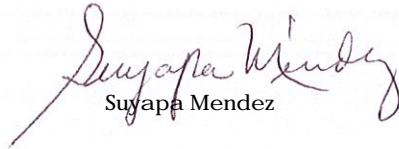 Suyapa Méndez
Suyapa Mendez